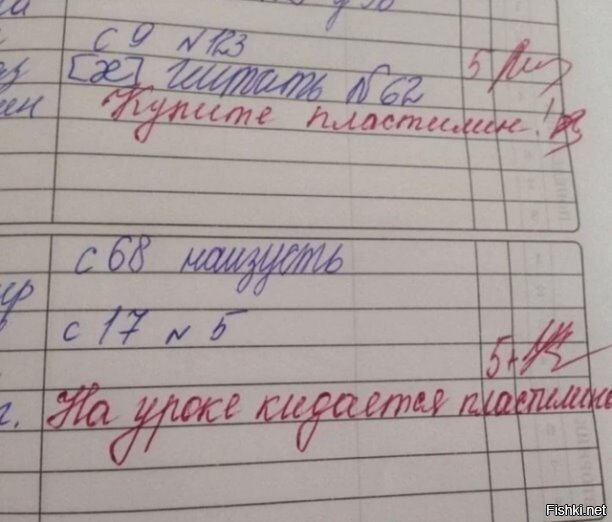 с 9 №123
[х] читать №62
5
Купите пластилин!
с 68 наизусть
с 17 № 5
5+
На уроке кидается пластилин
Fishki.net